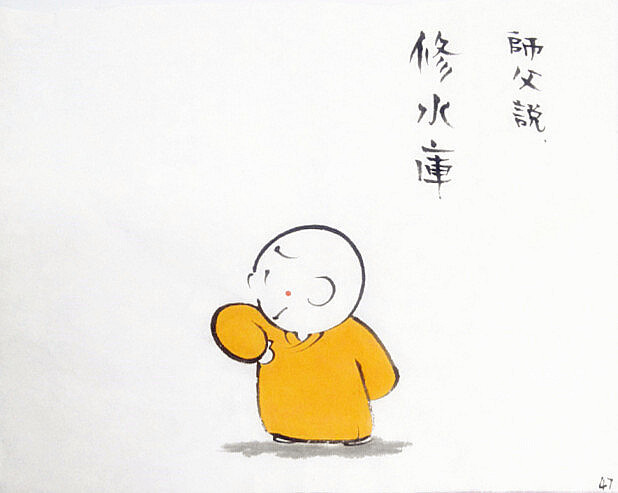 師父說.
修水庫
47